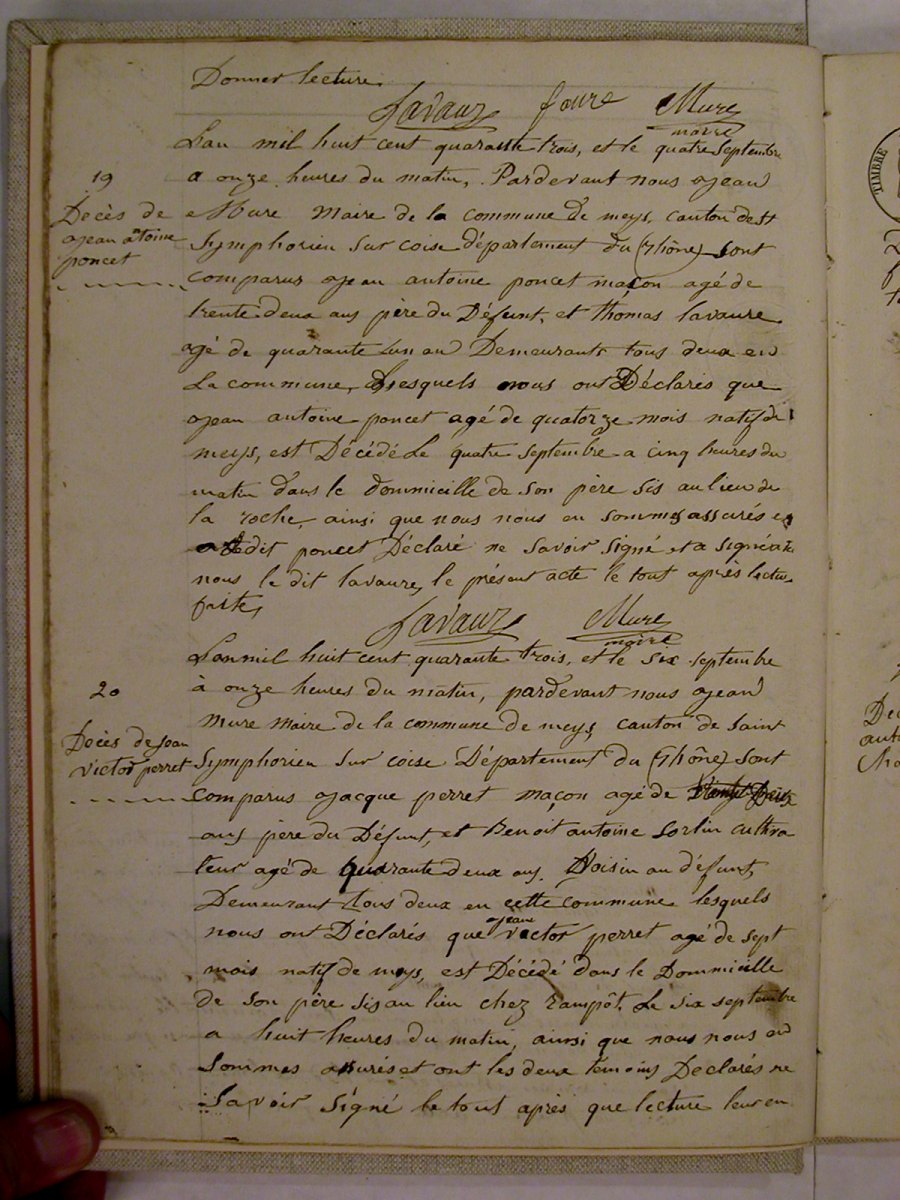 Donner lecture
Lavaur faure Mure
maire
L'an mil huit cent quarante trois, et le quatre septembre
19
a onze heures du matin, Pardevant nous jean
Décès de
jean antoine
poncet
Mure Maire de la commune de meys, canton de St
Symphorien sur coise département du (rhône) sont
comparus jean antoine poncet maçon agé de
trente deux ans père du Défunt, et thomas lavaure
agé de quarante un an Demeurants tous deux en
La commune, Lesquels nous ont Déclarés que
jean antoine poncet agé de quatorze mois natif de
meys, est Décédé Le quatre septembre a cinq heures du
matin dans le dommicille de son père sis au lieu de
la roche, ainsi que nous nous en sommes assurés et
a ledit poncet Déclaré ne savoir signé et a signé avec
nous le dit lavaure, le présent acte le tout après lectu
faite,
Lavaur Mure
maire
L'an mil huit cent quarante trois, et le six septembre
20
à onze heures du matin, pardevant nous jean
Décès de jean
victor perret
mure Maire de la commune de meys canton de saint
Symphorien sur coise Département du (rhône) sont
comparus jacque perret maçon agé de
ans père du Défunt, et Benoit antoine Sorlin cultiva
teur agé de quarante deux ans. Voisin au défunt,
Demeurant tous deux en cette commune lesquels
jean
nous ont Déclarés que victor perret agé de sept
mois natif de meys, est Décédé dans le Dommicille
de son père sis au lieu chez rampôt, Le six septembre
a huit heures du matin, ainsi que nous nous en
sommes assurés et ont les deux témoins Declarés ne
savoir signé le tout après que lecture leur en
TIMBRE